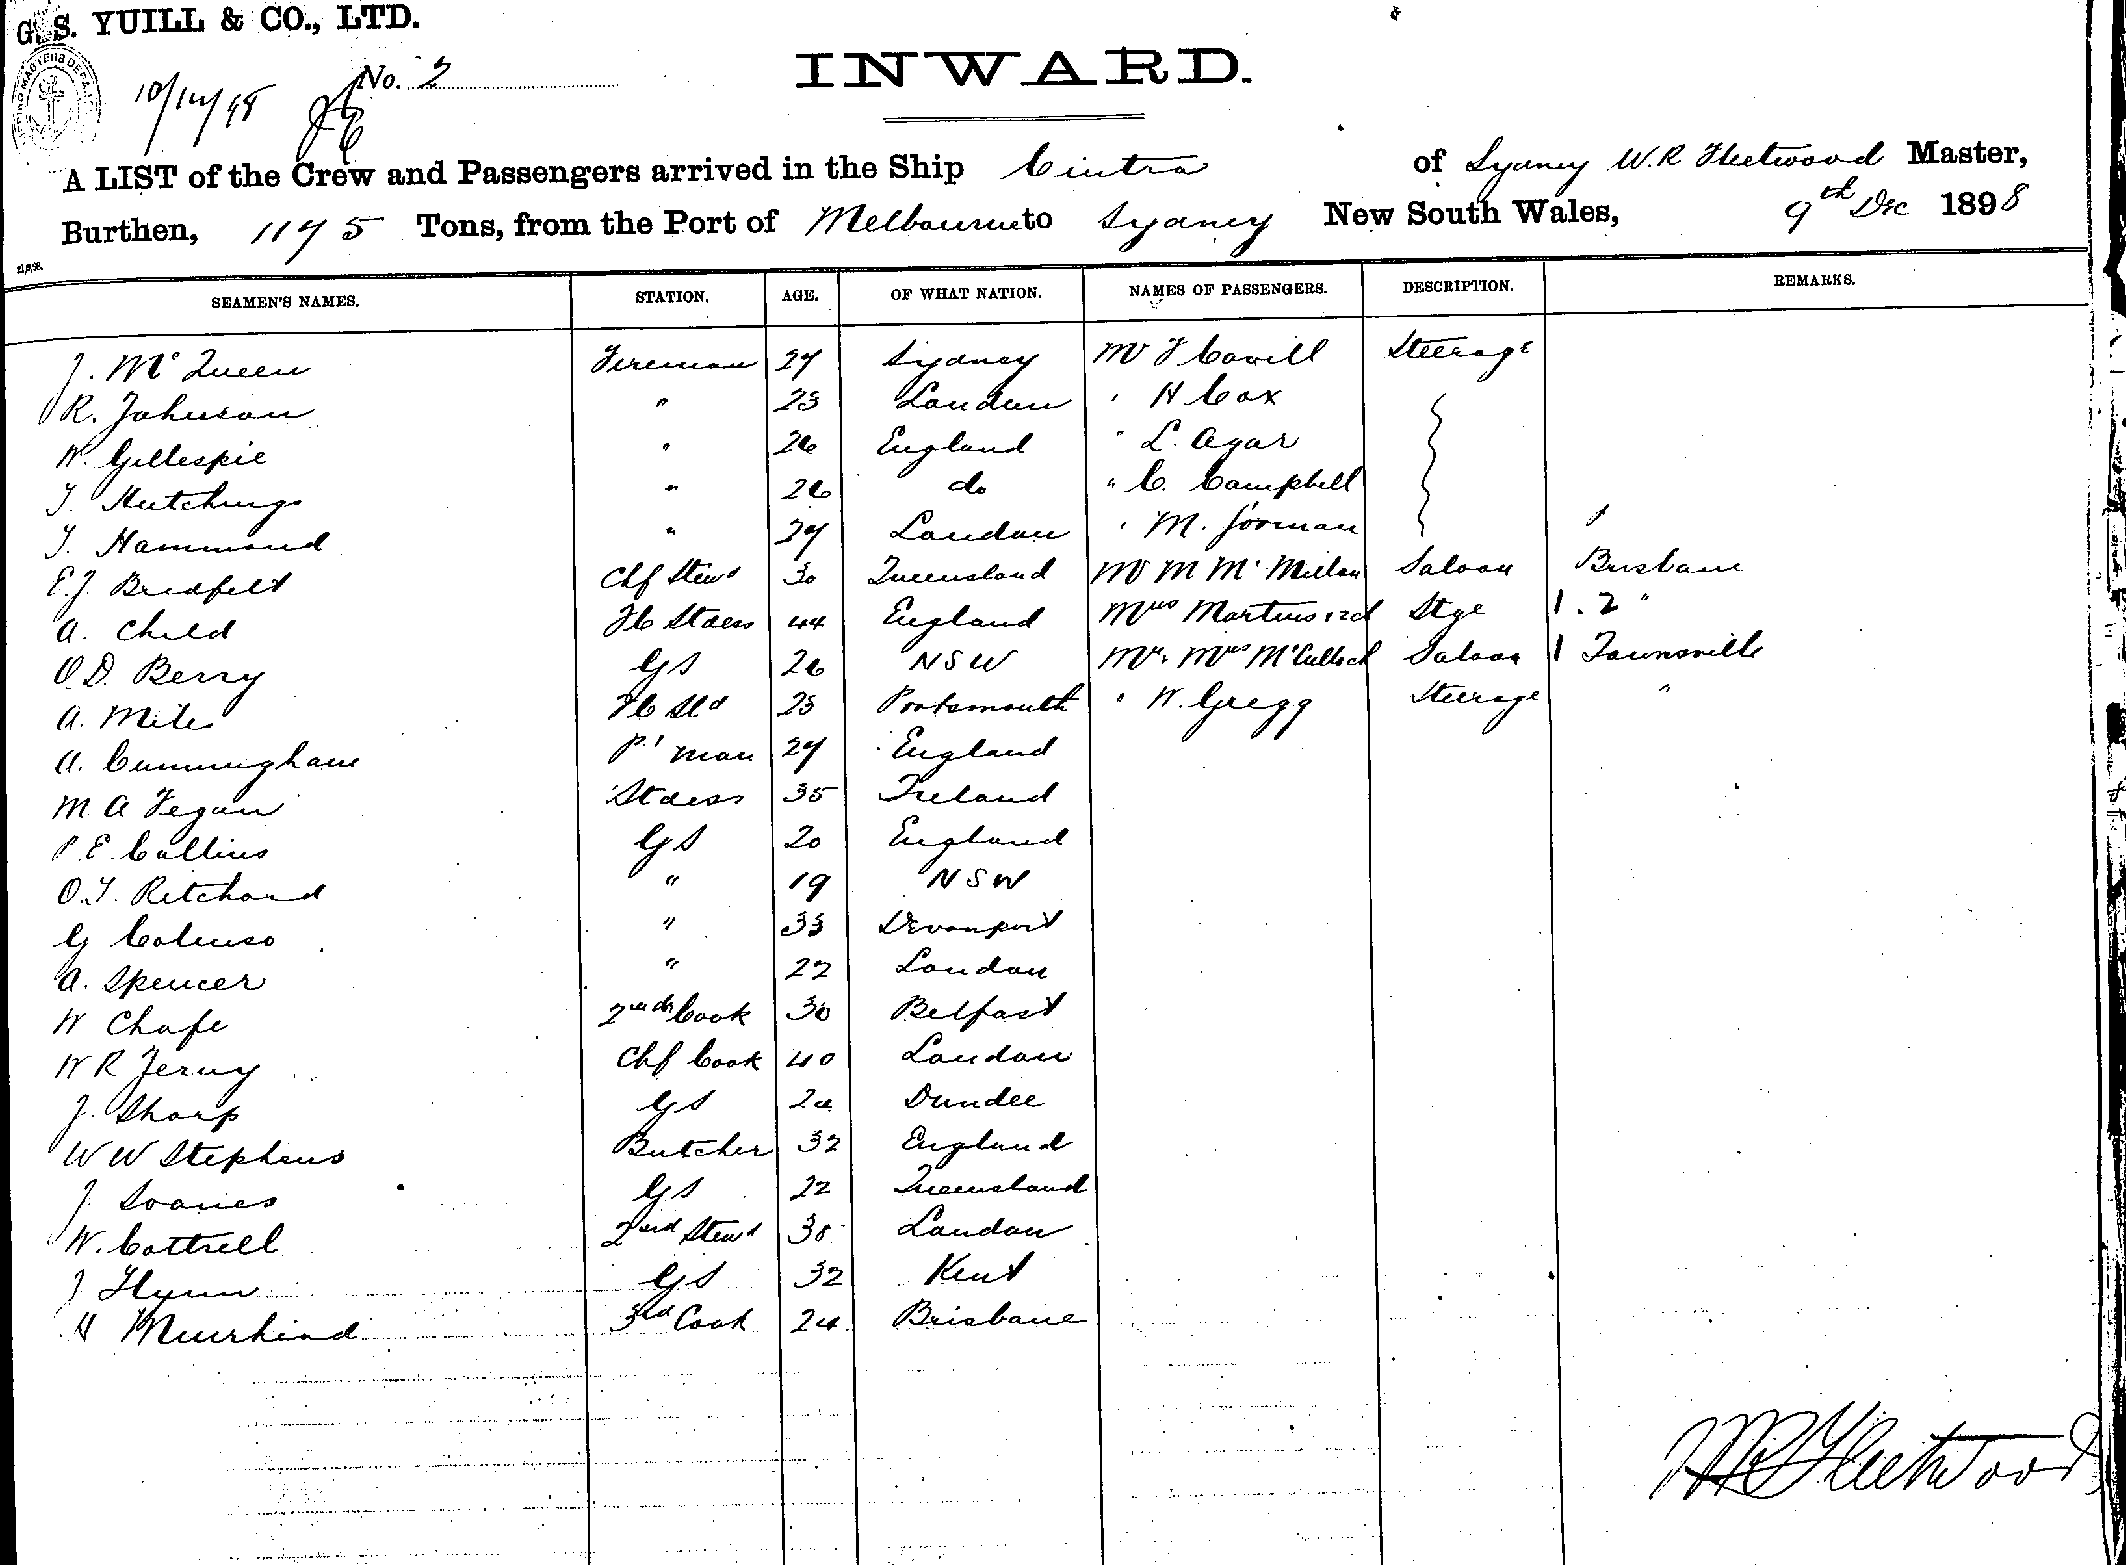 G. S. YUILL & CO., LTD.
10/12/98 No. 2
INWARD.
A LIST of the Crew and Passengers arrived in the Ship Cintra of Sydney W. R Fleetwood Master,
Burthen, 1175 Tons, from the Port of Melbourne to Sydney New South Wales, 9th Dec 1898
SEAMEN'S NAMES. STATION. AGE. OF WHAT NATION. NAMES OF PASSENGERS. DESCRIPTION. REMARKS.
J. Mc Queen Fireman 27 Sydney Mr F Cavill Steerage
R. Johnson " 23 London " H Cox
W. Gillespie " 26 England " L. Agar
T. Hutchings " 26 do " C. Campbell
T. Hammond " 27 London " M. Gorman
E. J. Bredfelt Chf Stewd 30 Queensland Mr M Mc Millan Saloon Brisbane
A. Child FC Stdess 44 England Mrs Martins & 2 cd Stge 1. 2 "
O. D. Berry GS 26 NSW Mr & Mrs McCulloch Saloon 1 Townsville
A. Miles FC Std 23 Portsmouth " W. Gregg Steerage "
A. Cunningham P. man 27 England
M A Fegan Stdess 35 Ireland
P E Collins GS 20 England
O. T. Ritchard " 19 NSW
G Colenso " 33 Devonport
A. Spencer " 22 London
W Chafe 2nd Cook 30 Belfast
W R Feruy Chf Cook 40 London
J. Sharp GS 24 Dundee
W W Stephens Butcher 32 England
J. Soanes GS 22 Queensland
W. Cottrell 2nd Stewd 38 London
J Flynn GS 32 Kent
H Muirhead 3rd Cook 24 Brisbane
W R Fleetwood